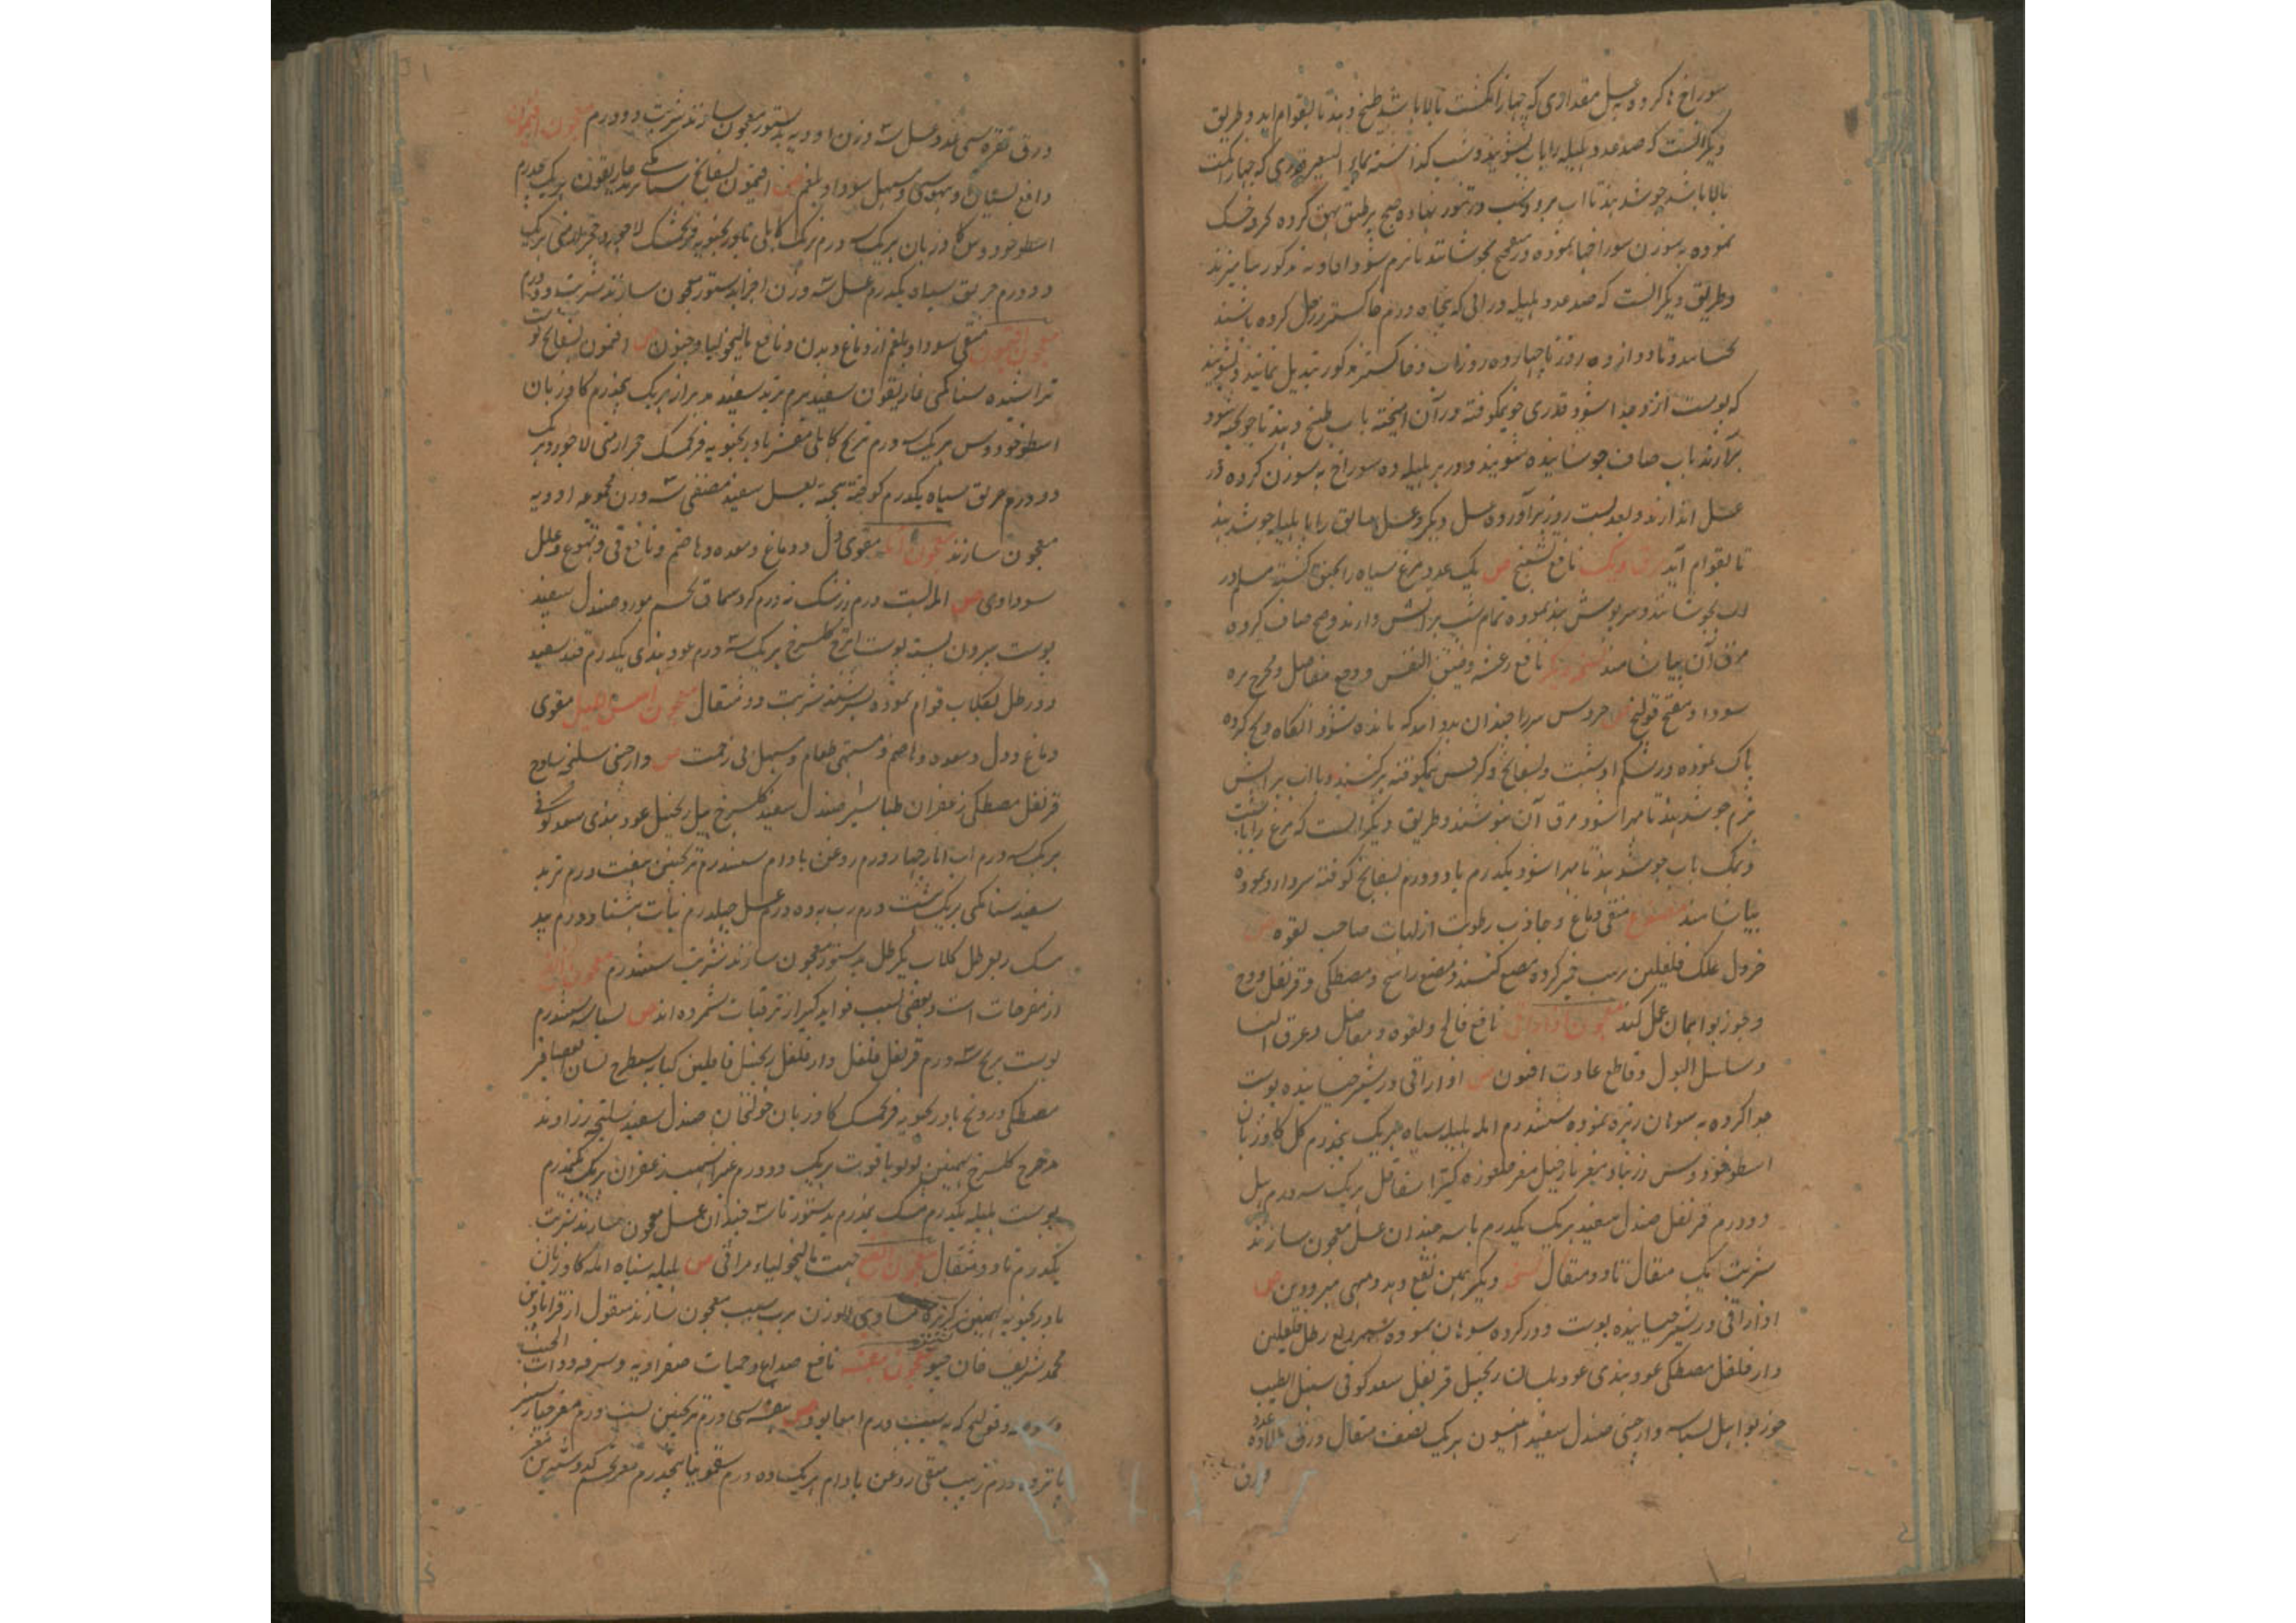 سوراخها کرده به عسل مقداری که چهار انگشت بالا باشد طبخ دهند تا بقوام آید و طریق
دیگر آنست که صد عدد هلیله را باب بشویند و شب گذاشته بماء الشعیر قدری که چهار انگشت
بالا باشد جوشند تا آب برود و شب در تنور نهاده صبح بر طبق پهن کرده خشک
نموده به سوزن سوراخها نموده در بجوشانند تا نرم شود ادویه مذکور بیامیزند
و طریق دیگر انست که صد عدد هلیله در آبی که پنجاه درم خاکستر رز حل کرده باشند
بخیسانند و تا دوازده روز یا چهارده روز آب و خاکستر مذکور تبدیل نمایند و بشویند
که پوست از و جدا شود قدری جو نیمکوفته در آن آمیخته باب طبخ دهند تا جو پخته شود
برآرند باب صاف جوشانیده بشویند و در هر هلیله ده سوراخ به سوزن کرده در
عسل اندازند و بعد بست روز برآورده عسل دیگر و عسل سابق را با هلیله جوشند
تا بقوام آید مرق دیک نافع تشنج ص یک عدد مرغ سیاه را کشته در
آب بجوشانند و سرپوش بند نموده تمام شب بر آتش دارند و صبح صاف کرده
مرق آن بیاشامند نسخه دیگر نافع رعشه و ضیق النفس و وجع مفاصل و مخرج مره
سودا و مفتح قولنج ص خروس سرد را چندان بدوانند که مانده شود آنگاه ذبح کرده
پاک نموده در شکم او شبت و بسفائج و کرفس نیمکوفته پر کنند و با آب بر آتش
نرم جوشند تا مهرا شود مرق آن بنوشند و طریق دیگر انست که مرغ را با شبت
و نمک باب جوشند تا مهرا شود یکدرم یا دو درم بسفائج کوفته سردار و نموده
بیاشامند مضوغ منقی دماغ و جاذب رطوبت از لهات صاحب لقوه ص
خردل علک فلفلین زبیب خمیر کرده مضغ کنند و مضغ راسخ و مصطکی و قرنفل و وج
و جوزبوا همان عمل کند معجون اذاراقی نافع فالج و لقوه و مفاصل و عرق النسا
و سلسل البول و قاطع عادت افیون ص اذاراقی در شیر خیسانیده پوست
جدا کرده به سوهان ریزه نموده ششدرم امله هلیله سیاه هریک پنجدرم گل گاوزبان
اسطوخودوس زرنباد مغز نارجیل مغز چلغوزه کتیرا شقاقل هریک سه درم هیل
دو درم قرنفل صندل سفید هریک یکدرم با سه چندان عسل معجون سازند
شربت یک مثقال تا دو مثقال نسخه دیگر همین نفع دهد و مبهی مبرودین ص
اذاراقی در شیر خیسانیده پوست دور کرده سوهان نموده ربع رطل فلفلین
دارفلفل مصطکی عود هندی عود بلسان زنجبیل قرنفل سعد کوفی سنبل الطیب
جوزبوا هیل بسباسه دارچینی صندل سفید افسنتیون هریک نصف مثقال ورق طلا ده عدد
ورق
ورق نقره سی عدد عسل سه وزن ادویه بدستور معجون سازند شربت دو درم معجون افتیمون
دافع نسیان و بیهوشی و مسهل سودا و بلغم ص افتیمون بسفائج سنا مکی تربد غاریقون هریک درم
اسطوخودوس گاوزبان هریک سه درم برنگ کابلی بادرنجبویه فرنجمشک لاجورد حجر ارمنی هریک
دو درم خربق سیاه یکدرم عسل سه وزن اجزا بدستور معجون سازند شربت دو درم
معجون افتیمون منقی سودا و بلغم از دماغ و بدن و نافع مالیخولیا و جنون ص افتیمون بسفائج پوست
تراشیده سنا مکی غاریقون سفید نرم تربد سفید مدبر از هریک پنجدرم گاوزبان
اسطوخودوس هریک سه درم برنج کابلی مقشر بادرنجبویه فرنجمشک حجر ارمنی لاجورد هریک
دو درم خربق سیاه یکدرم کوفته بیخته بعسل سفید مصفی سه وزن مجموعه ادویه
معجون سازند معجون امله مقوی دل و دماغ و معده و هاضم و نافع قی و تهوع و علل
سوداوی ص امله بست درم زرشک نه درم کرد سماق تخم مورد صندل سفید
پوست بیرون پسته پوست اترج گلسرخ هریک سه درم عود هندی یکدرم قند سفید
دو رطل بگلاب قوام نموده بسرشند شربت دو مثقال معجون مقوی
دماغ و دل و معده و هاضم و مشتهی طعام و مسهل بی زحمت ص دارچینی سلیخه ساذج
قرنفل مصطکی زعفران طباشیر صندل سفید گلسرخ هیل زنجبیل عود هندی سعد کوفی
هریک سه درم اب انار چهار درم روغن بادام سیدرم ترنجبین هفت درم تربد
سفید سنا مکی هریک هشت درم رب به ده درم عسل چهلدرم نبات هشتاد درم بید
مشک ربع رطل گلاب یکرطل بدستور معجون سازند شربت سیدرم معجون
از مفرحات است و بعضی بسبب فواید کثیر از تریاقات شمرده اند ص بسباسه سیدرم
پوست ترنج سه درم قرنفل فلفل دارفلفل زنجبیل قاقلتین کبابه شیطرج لسان العصافیر
مصطکی درونج بادرنجبویه فرنجمشک گاوزبان خولنجان صندل سفید سلیخه زراوند
مدحرج گلسرخ بهمنین لولو یاقوت هریک دو درم عنبر اشهب زعفران هریک نیمدرم
پوست هلیله یکدرم مشک نیمدرم بدستور با سه چندان عسل معجون سازند شربت
یکدرم تا دو مثقال معجون نجاح جهت مالیخولیاء مراقی ص هلیله سیاه امله گاوزبان
بادرنجبویه بهمنین کزبره مساوی الوزن برب سیب معجون سازند منقول از قرابادین
محمد شریف خان جیو معجون بنفشه نافع صداع و حمیات صفراویه و سرفه و ذات الجنب
و قولنج که به سبب ورم امعا بود ص بنفشه سی درم ترنجبین بست درم مغز خیار شنبر
پانزده درم زبیب منقی روغن بادام هریک ده درم سقمونیا پنجدرم مغز تخم کدو شیرین